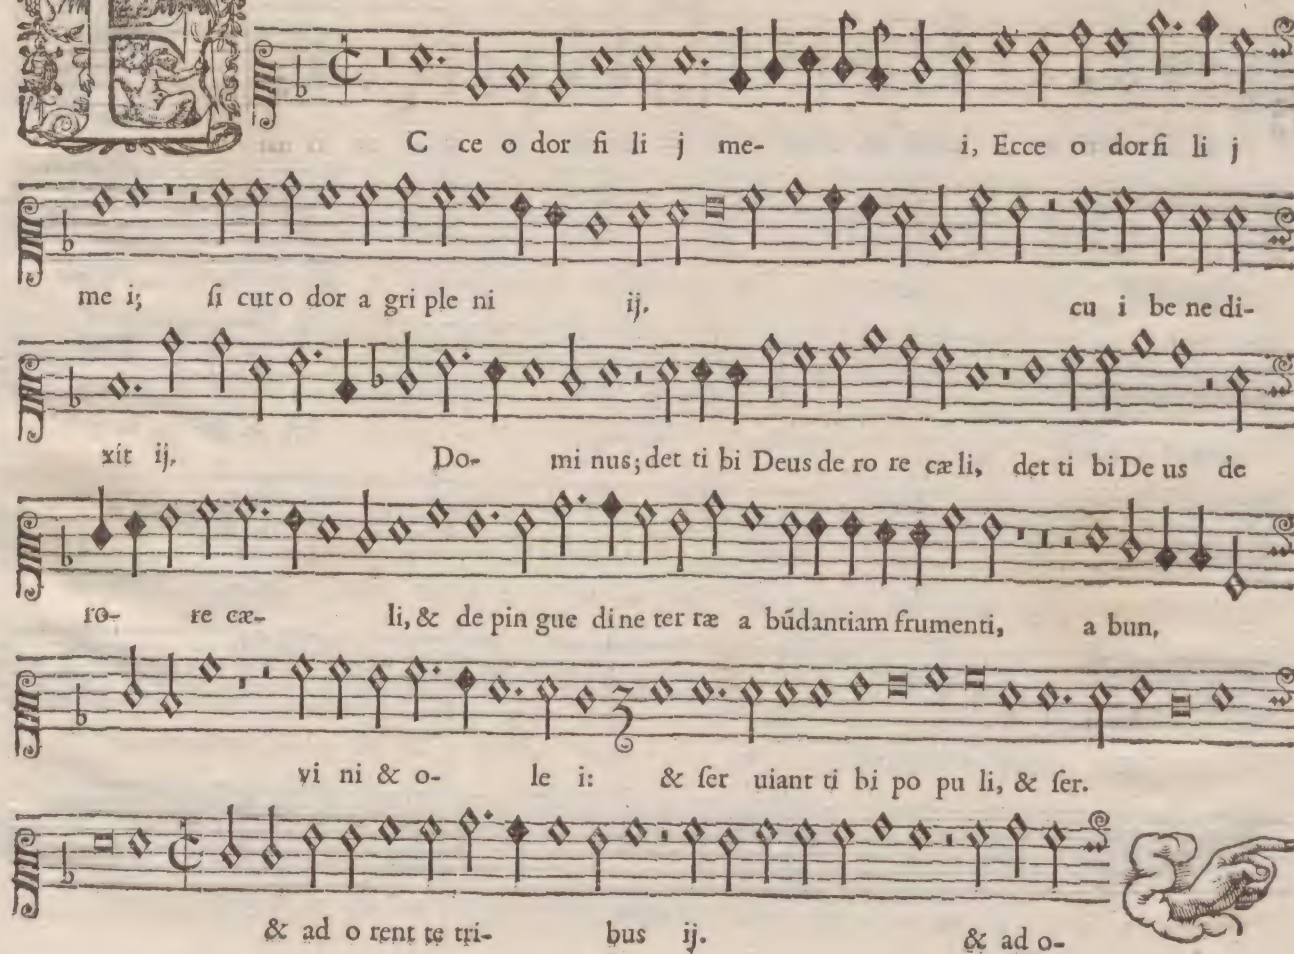 E C ce o dor fi li j me- i, Ecce o dor fi li j
me i; ſi cut o dor a gri ple ni ij. cu i be ne di-
xit ij. Do- mi nus; det ti bi Deus de ro re cæ li, det ti bi De us de
ro- re cæ- li, & de pin gue di ne ter ræ a bũdantiam frumenti, a bun,
vi ni & o- le i: & ſer uiant ti bi po pu li, & ſer.
& ad o rent te tri- bus ij. & ad o-